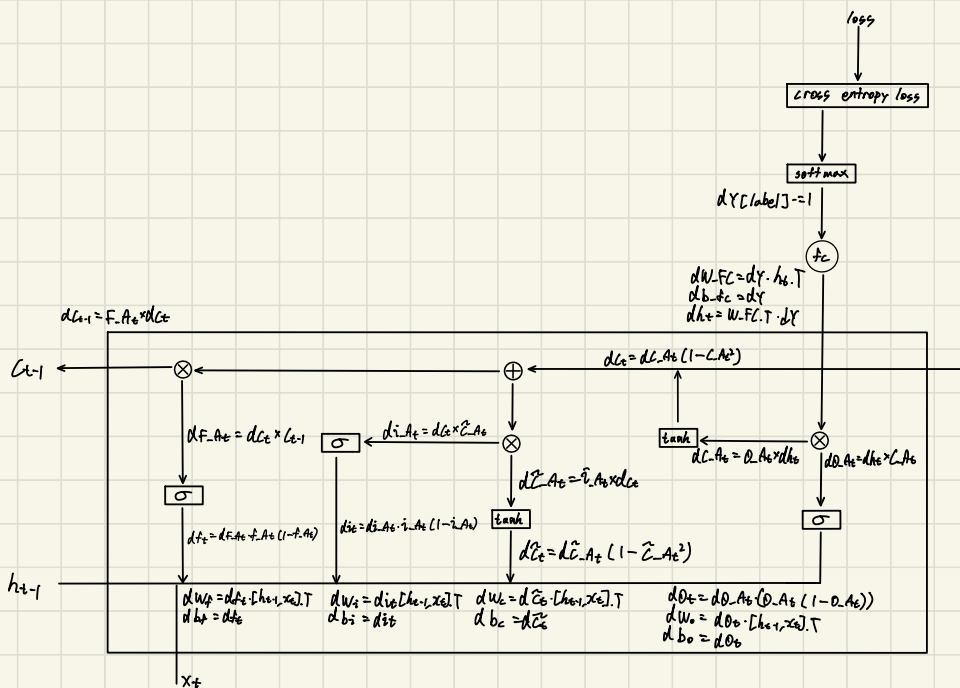 loss
cross entropy loss
softmax
dY[label]-=1
fc
dW_FC=dY·ht.T
db_fc=dY
dht=W_FC.T·dY
dCt-1=F_At×dCt
Ct-1
dCt=dC_At(1-C_At²)
dF_At=dCt×Ct-1
σ
di_At=dCt×C̃_At
tanh
dC_At=O_At×dht
dO_At=dht×C_At
dC̃_At=i_At×dCt
σ
tanh
σ
dft=dF_At·f_At(1-f_At)
dit=di_At·i_At(1-i_At)
dC̃t=dC̃_At(1-C̃_At²)
ht-1
dWf=dft·[ht-1,xt].T
dbf=dft
dWi=dit[ht-1,xt].T
dbi=dit
dWc=dC̃t·[ht-1,xt].T
dbc=dC̃t
dOt=dO_At·(O_At(1-O_At))
dWo=dOt·[ht-1,xt].T
dbo=dOt
xt